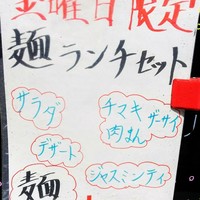 金曜日限定
麺ランチセット
サラダ
チマキ ザーサイ
肉まん
デザート
ジャスミンティ
麺